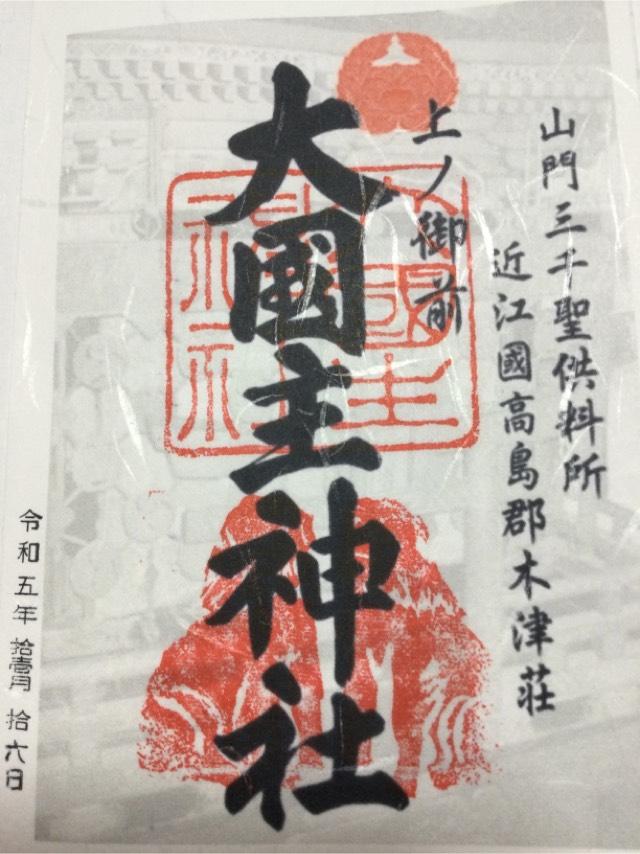 山門三千聖供料所
近江國高島郡木津荘
上ノ御前
大國主神社
大國主
神社
令和五年 拾壱月 拾六日